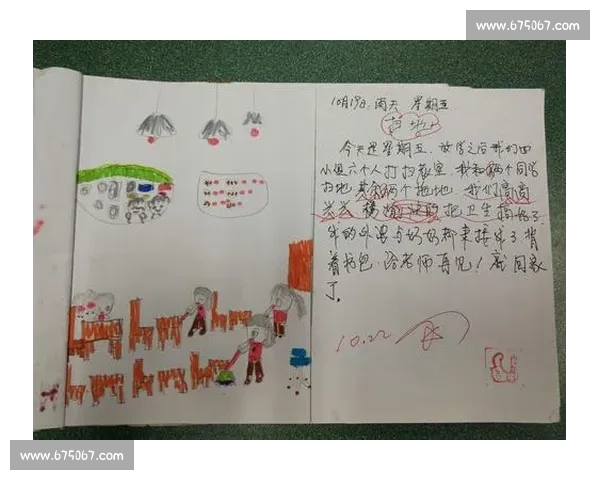 www.675067.com
10月19日 雨天 星期五
扫地
今天是星期五,放学之后我们四
小组六个人打扫教室,我和俩个同学
扫地,其余俩个拖地,我们高高
兴兴 的把卫生搞好了
年的外婆与奶奶都来接
着书包,给老师再见!就回家
了。
10.22 阅
www.675067.com